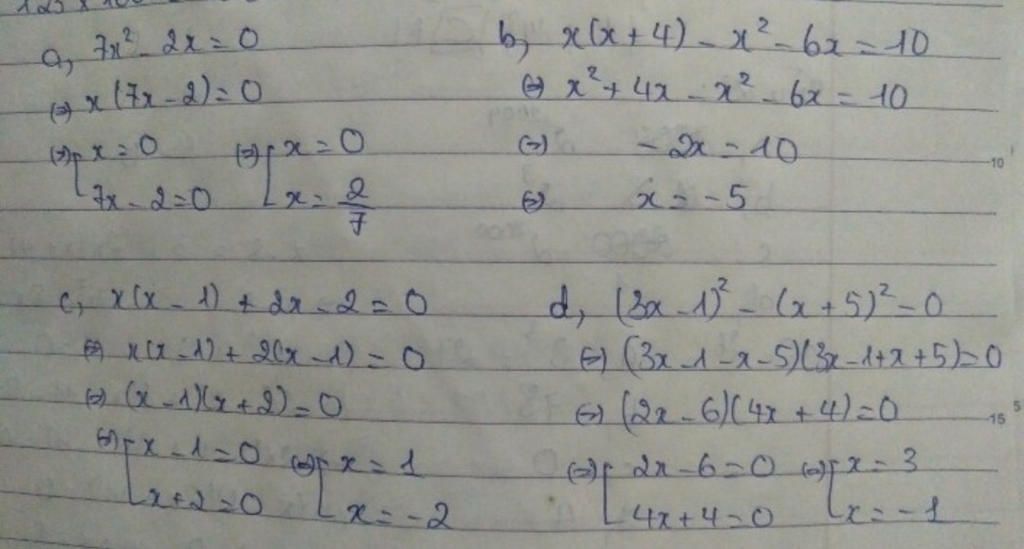 a, 7x² - 2x = 0
(=) x(7x - 2) = 0
(=) [ x = 0 (=) [ x = 0
7x - 2 = 0 x = 2/7
b, x(x + 4) - x² - 6x = 10
(=) x² + 4x - x² - 6x = 10
(=) - 2x = 10
(=) x = -5
c, x(x - 1) + 2x - 2 = 0
(=) x(x - 1) + 2(x - 1) = 0
(=) (x - 1)(x + 2) = 0
(=) [ x - 1 = 0 (=) [ x = 1
x + 2 = 0 x = -2
d, (3x - 1)² - (x + 5)² = 0
(=) (3x - 1 - x - 5)(3x - 1 + x + 5) = 0
(=) (2x - 6)(4x + 4) = 0
(=) [ 2x - 6 = 0 (=) [ x = 3
4x + 4 = 0 x = -1
10
15
5